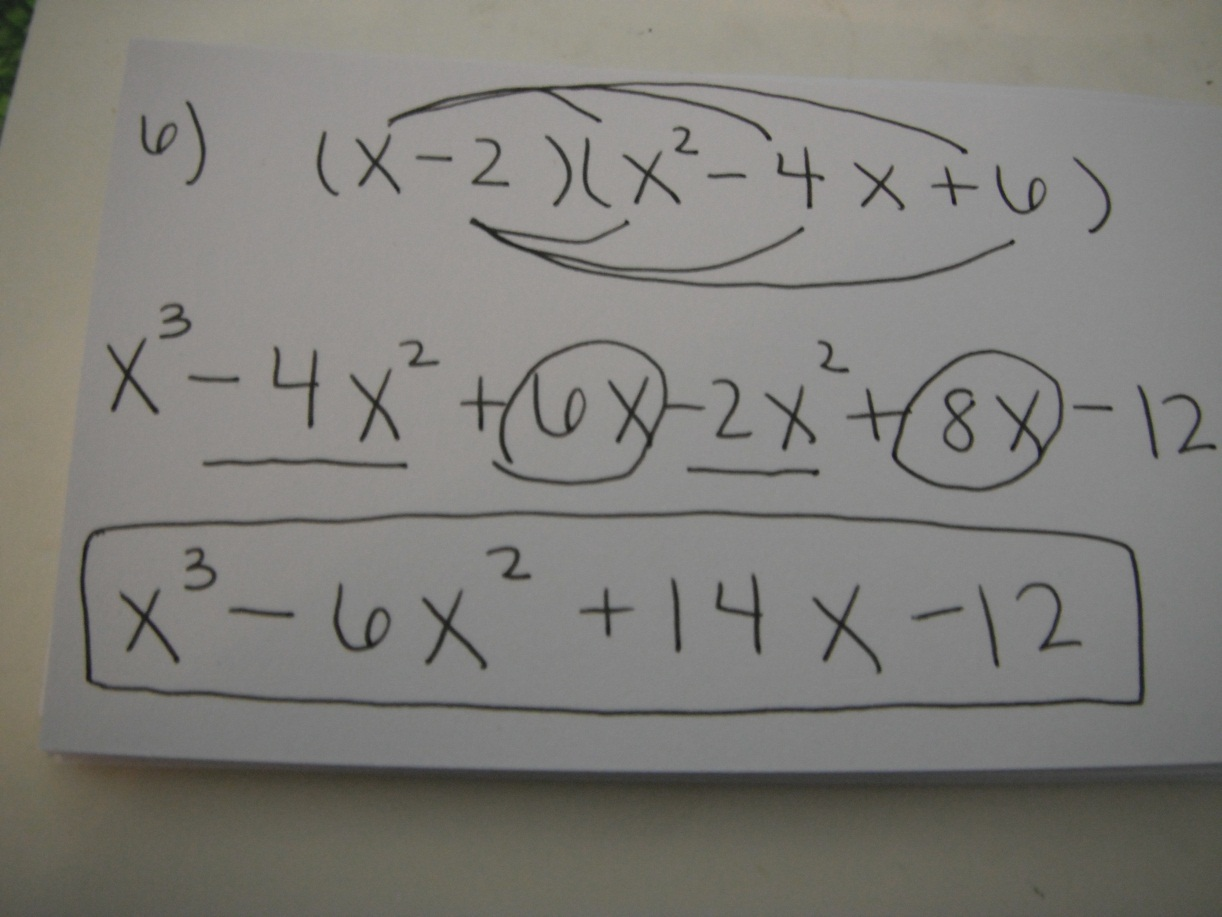 6) (x-2)(x²-4x+6)
x³-4x²+6x-2x²+8x-12
x³-6x²+14x-12